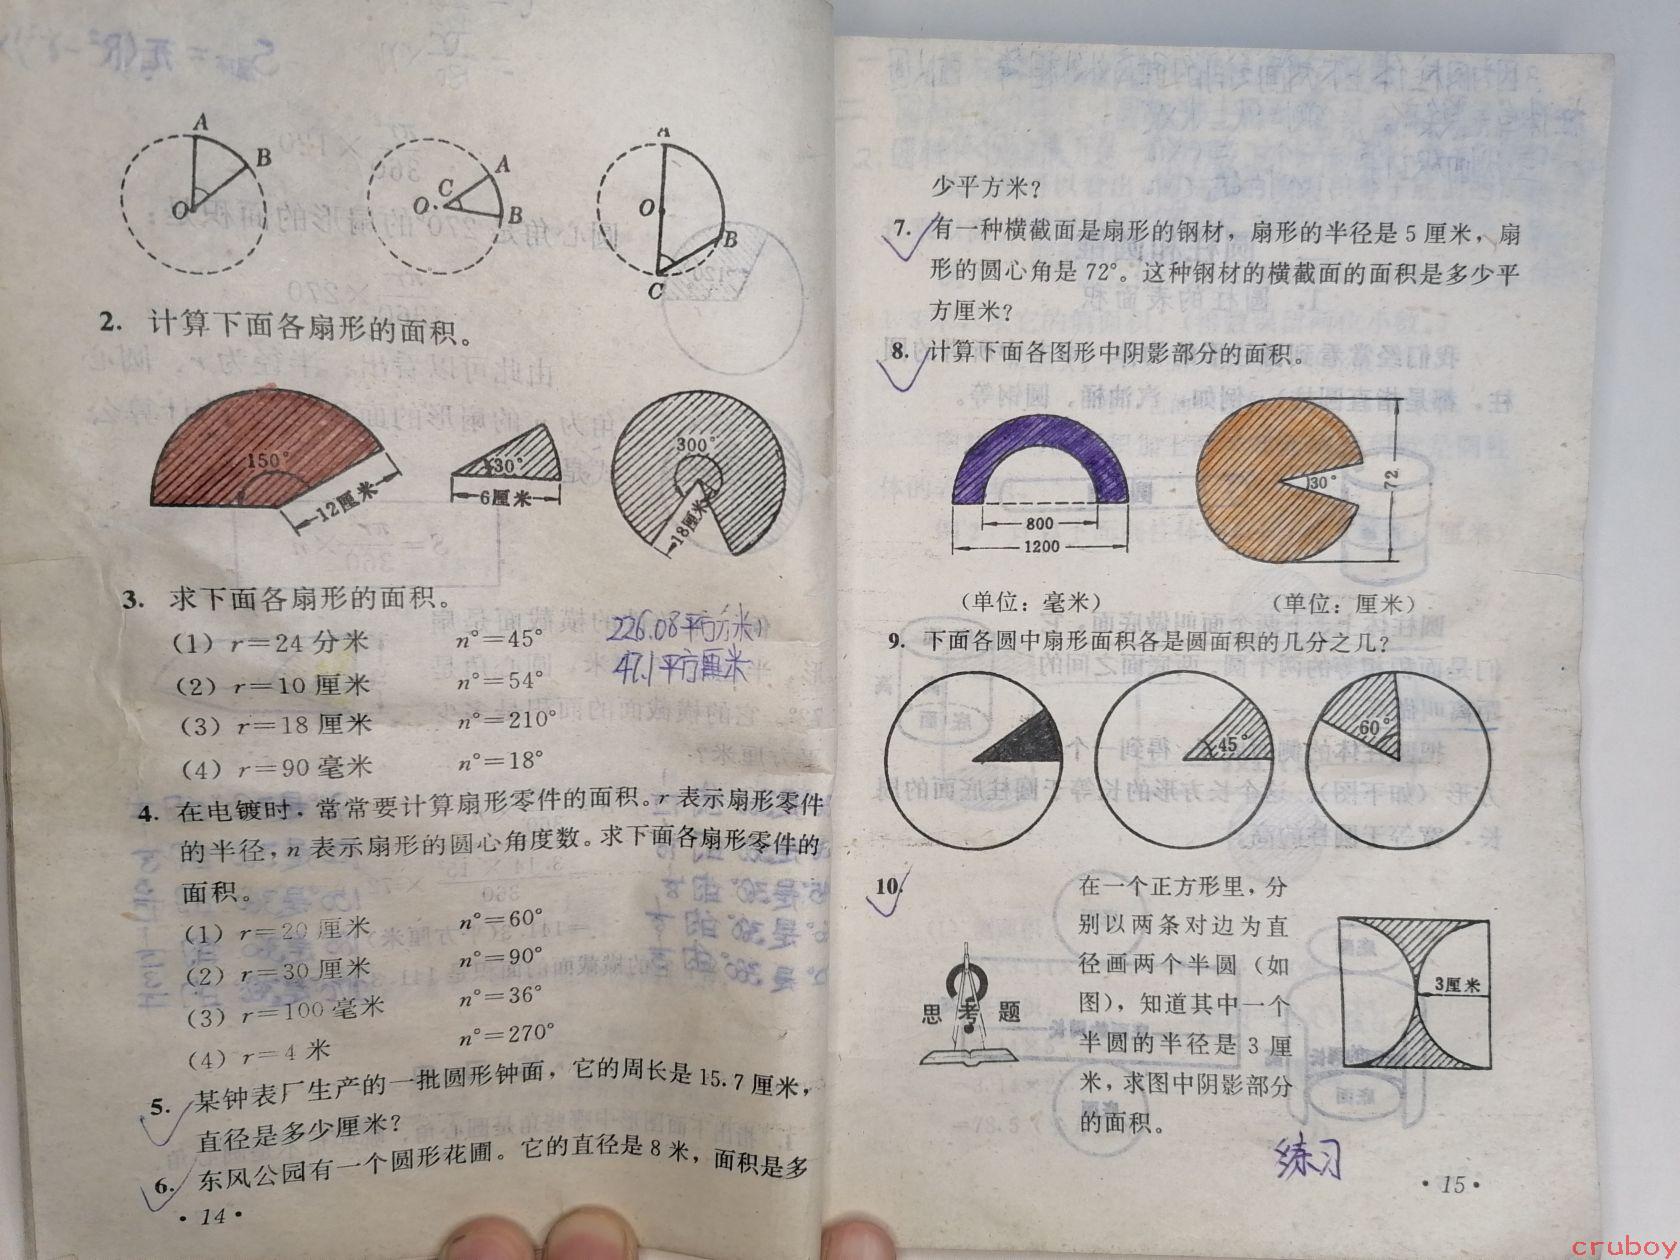 A
B
O
A
C
O
B
A
O
B
C
2. 计算下面各扇形的面积。
150°
12厘米
30°
6厘米
300°
18厘米
3. 求下面各扇形的面积。
(1) r=24分米 n°=45° 226.08平方分米
(2) r=10厘米 n°=54° 47.1平方厘米
(3) r=18厘米 n°=210°
(4) r=90毫米 n°=18°
4. 在电镀时，常常要计算扇形零件的面积。r表示扇形零件
的半径，n表示扇形的圆心角度数。求下面各扇形零件的
面积。
(1) r=20厘米 n°=60°
(2) r=30厘米 n°=90°
(3) r=100毫米 n°=36°
(4) r=4米 n°=270°
5. 某钟表厂生产的一批圆形钟面，它的周长是15.7厘米，
直径是多少厘米？
6. 东风公园有一个圆形花圃。它的直径是8米，面积是多
·14·
少平方米？
7. 有一种横截面是扇形的钢材，扇形的半径是5厘米，扇
形的圆心角是72°。这种钢材的横截面的面积是多少平
方厘米？
8. 计算下面各图形中阴影部分的面积。
800
1200
30°
72
(单位：毫米)
(单位：厘米)
9. 下面各圆中扇形面积各是圆面积的几分之几？
45°
60°
10.
思考题
在一个正方形里，分
别以两条对边为直
径画两个半圆（如
图），知道其中一个
半圆的半径是3厘
米，求图中阴影部分
的面积。
3厘米
练习
·15·
cruboy